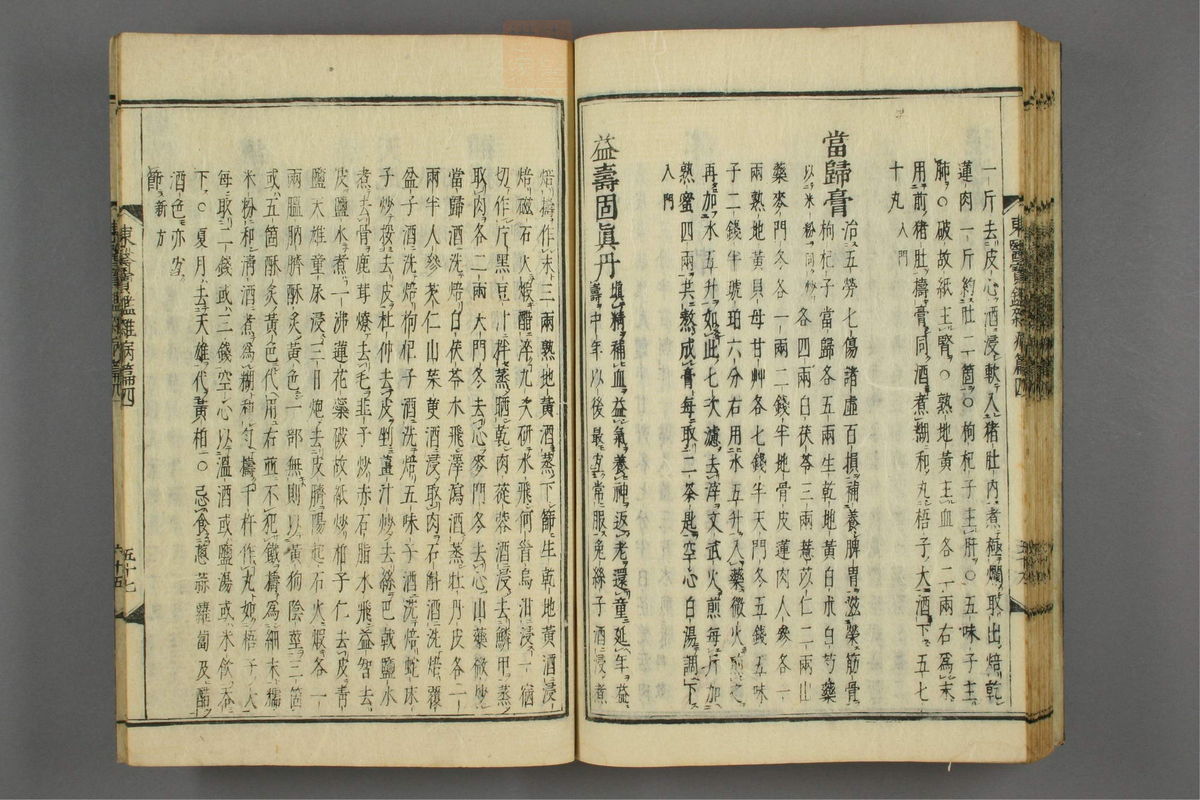 一斤去皮心酒浸軟入猪肚内煮極爛取出焙乾
蓮肉一斤約肚二箇○枸杞子主肝○五味子主
肺○破故紙主腎○熟地黄主血各二兩右爲末
用前猪肚擣膏同酒煮糊和丸梧子大酒下五七
十丸入門
當歸膏 治五勞七傷諸虚百損補養脾胃滋榮筋骨
枸杞子當歸各五兩生乾地黄白朮白芍藥
以米粉同炒各四兩白茯苓三兩薏苡仁二兩山
藥麥門冬各一兩二錢半地骨皮蓮肉人參各一
兩熟地黄貝母甘艸各七錢半天門冬五錢五味
子二錢半琥珀六分右用水五升入藥微火煎之
再加水五升如此七次濾去滓文武火煎每斤加
熟蜜四兩共熬成膏每取二茶匙空心白湯調下
入門
益壽固眞丹 塡精補血益氣養神返老還童延年益
壽中年以後最宜常服兔絲子酒浸煮
焙擣作末三兩熟地黄酒蒸下節生乾地黄酒浸
焙磁石火煆醋淬九次研水飛何首烏泔浸一宿
切作片黑豆汁拌蒸晒乾肉蓯蓉酒浸去鱗甲蒸
取肉各二兩天門冬去心麥門冬去心山藥微炒
當歸酒洗焙白茯苓水飛澤瀉酒蒸牡丹皮各一
兩半人參栢仁山茱萸酒浸取肉石斛酒洗焙覆
盆子酒洗焙枸杞子酒洗焙五味子酒洗焙蛇床
子炒挼去皮杜仲去皮剉薑汁炒去絲巴戟鹽水
煮去骨鹿茸燎去毛韭子炒赤石脂水飛益智去
皮鹽水煮一沸蓮花蘂破故紙炒栢子仁去皮靑
鹽天雄童尿浸三日炮去皮臍陽起石火煆各一
兩膃肭臍酥炙黄色一部無則以黄狗陰莖三箇
或五箇酥炙黄色代用右並不犯鐵擣爲細末糯
米粉和淸酒煮爲糊和勻擣千杵作丸如梧子大
每取二錢或三錢空心以溫酒或鹽湯或米飮吞
下○夏月去天雄代黄栢○忌食葱蒜蘿蔔及醋
酒色亦少
節新方
東醫寶鑑雜病篇四
五十七
東醫寶鑑雜病篇四